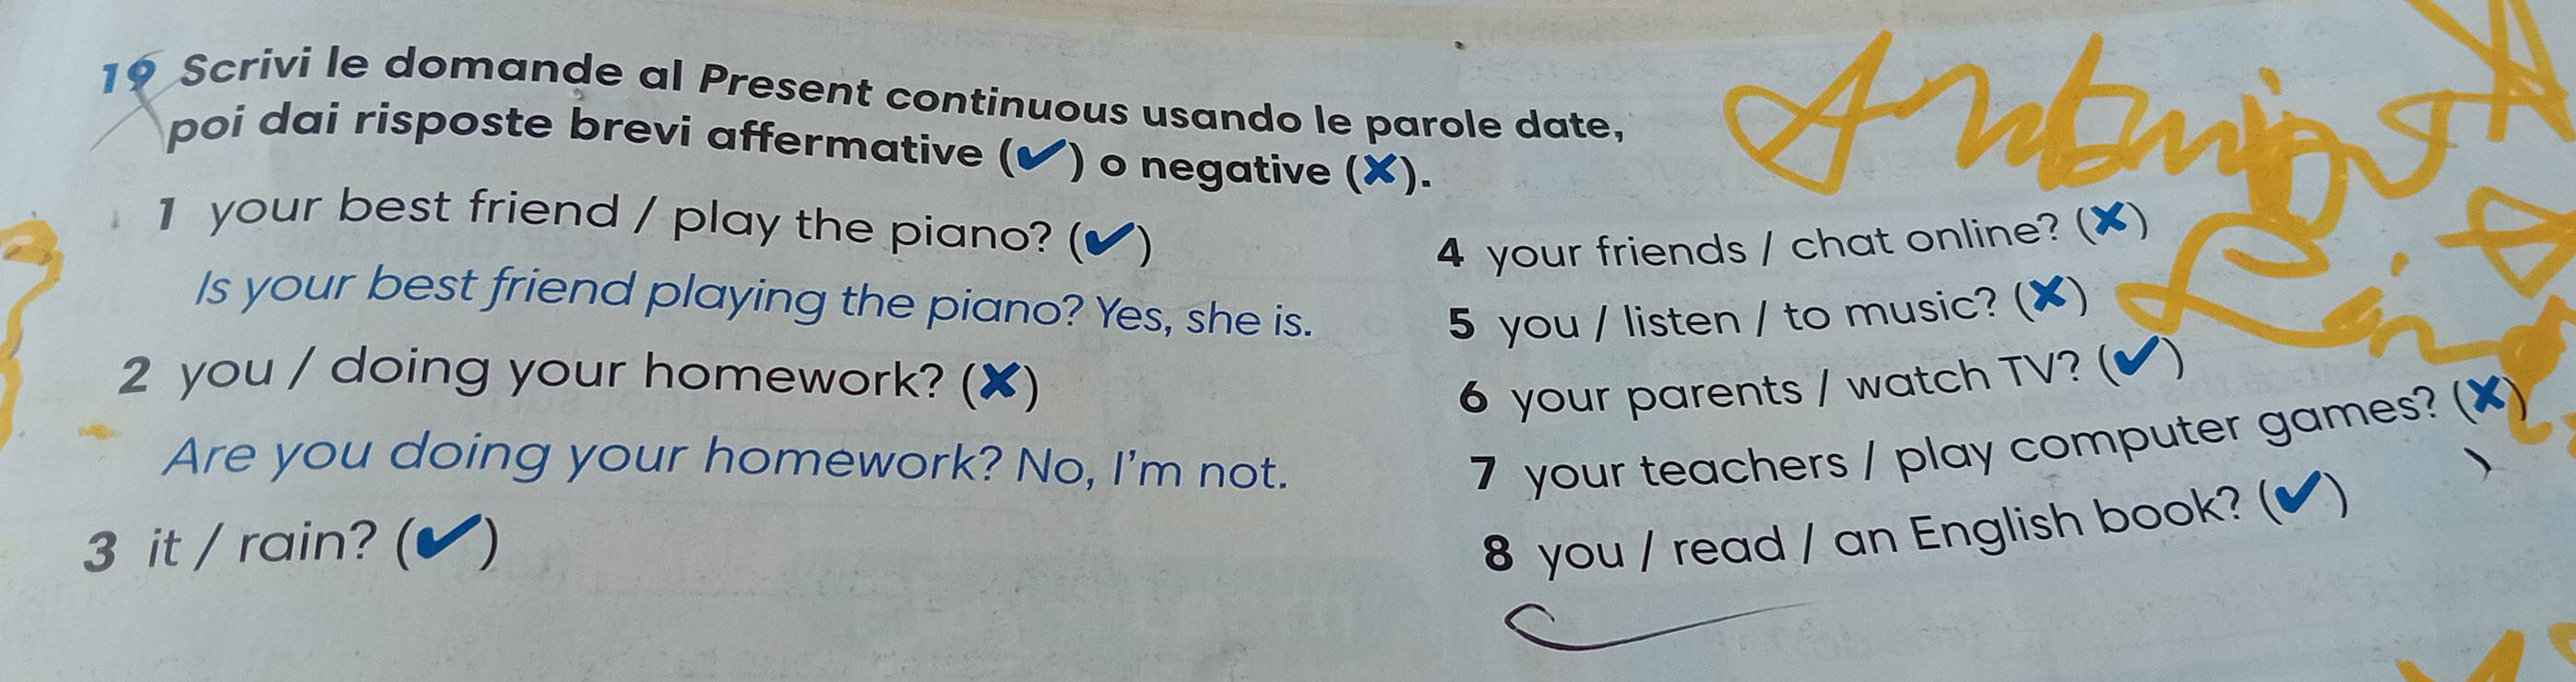 19 Scrivi le domande al Present continuous usando le parole date,
poi dai risposte brevi affermative (✔) o negative (✘).
1 your best friend / play the piano? (✔)
Is your best friend playing the piano? Yes, she is.
2 you / doing your homework? (✘)
Are you doing your homework? No, I'm not.
3 it / rain? (✔)
4 your friends / chat online? (✘)
5 you / listen / to music? (✘)
6 your parents / watch TV? (✔)
7 your teachers / play computer games? (✘)
8 you / read / an English book? (✔)